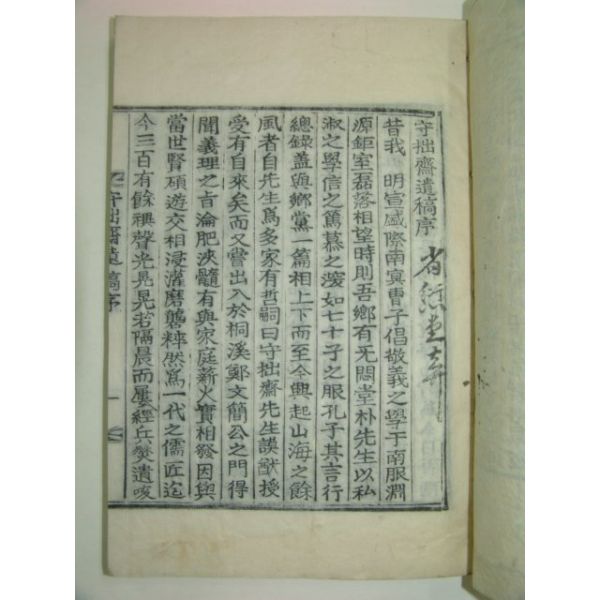 守拙齋遺稿序
昔我 明宣盛際南冥曺子倡敬義之學于南服淵
源鉅室磊落相望時則吾鄉有无悶堂朴先生以私
淑之學信之篤慕之深如七十子之服孔子其言行
總錄盖與鄉黨一篇相上下而至今興起山海之餘
風者自先生爲多家有哲嗣曰守拙齋先生謨猷授
受有自來矣而又嘗出入於桐溪鄭文簡公之門得
聞義理之言淪肥浹髓有與家庭薪火實相發因與
當世賢碩遊交相浸灌磨礱粹然爲一代之儒匠迄
今三百有餘禩聲光晃晃若隔晨而屢經兵燹遺唆
守拙齋遺稿序
一